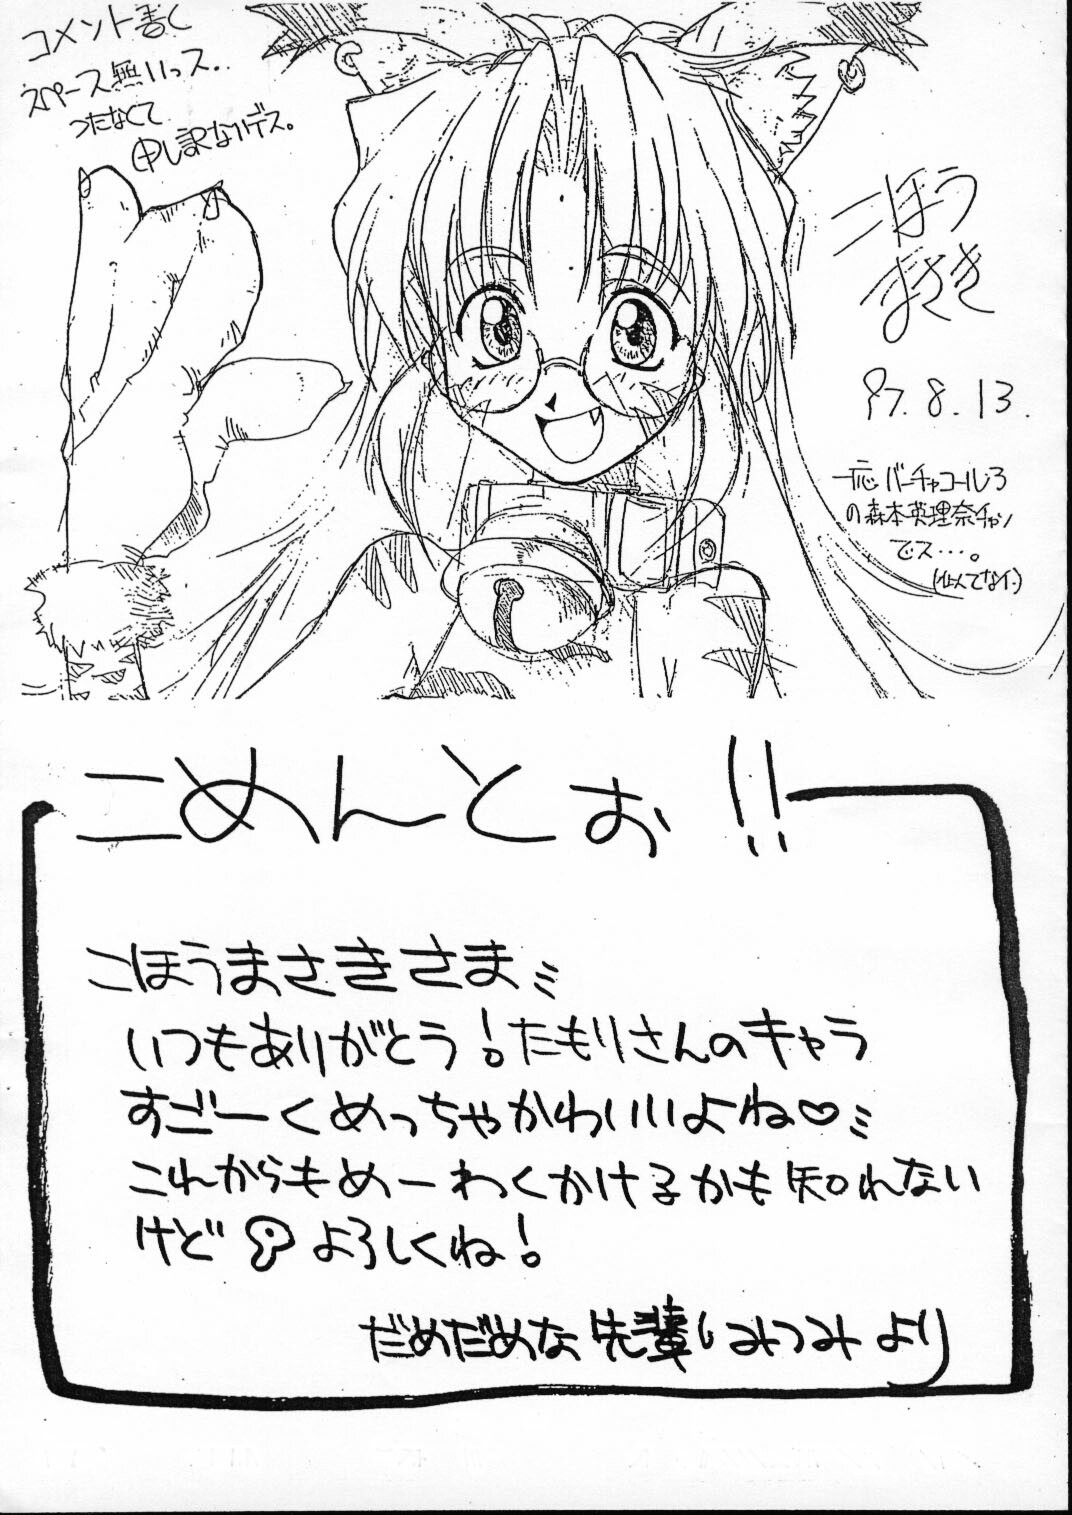 コメント書く
スペース無いっス..
つたなくて
申し訳ないデス。
こほう
まさき
97.8.13.
一応バーチャコール3
の森本英理奈チャン
でス…。
(似てなイ・)
こめんとぉ!!
こほうまさきさま
いつもありがとう!たもりさんのキャラ
すごーくめっちゃかわいいよね♡
これからもめーわくかける子かも知れない
けど よろしくね!
だめだめな先輩しみつみより